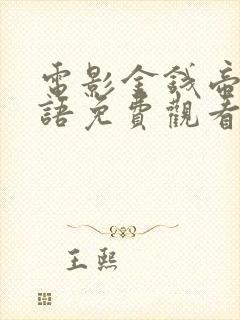 電影金錢帝
語免費觀看
王熙